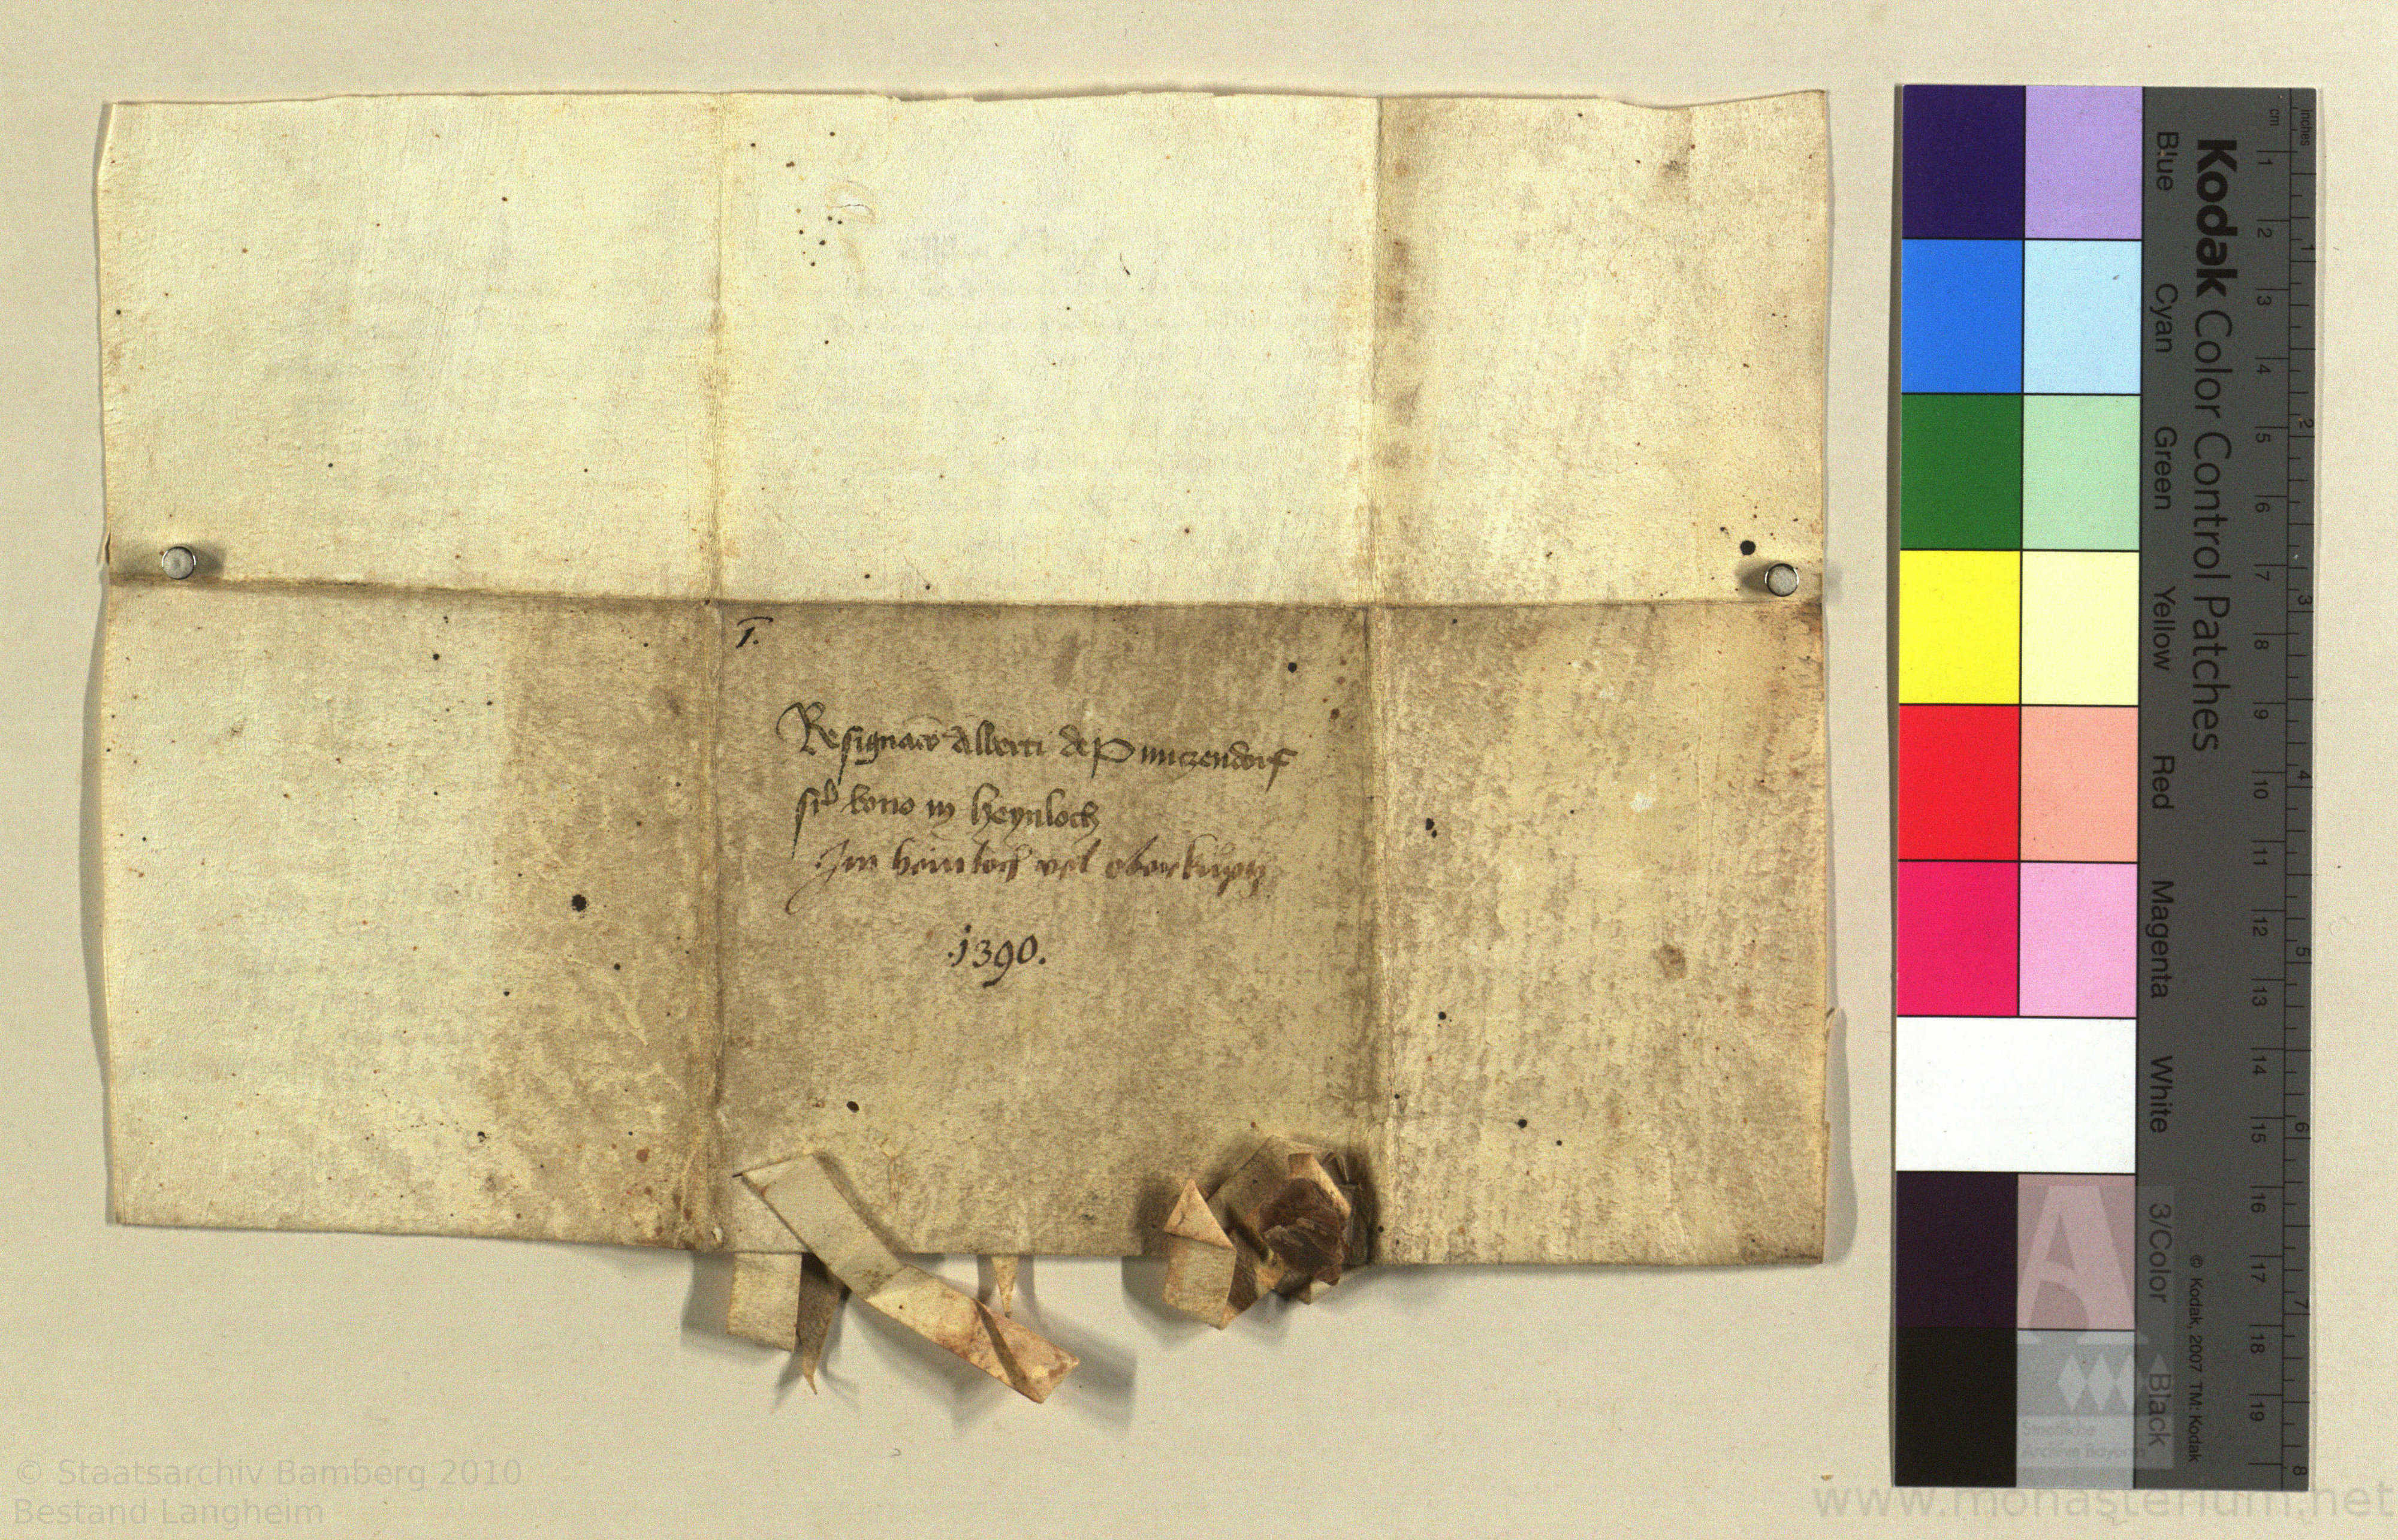 I.
Resignacio Alberti de Puntzendorf
sup bono in Heynloch
Im heinloch vel oberkups
.1390.
Kodak Color Control Patches
Blue Cyan Green Yellow Red Magenta White 3/Color Black
© Kodak, 2007 TM: Kodak
cm 1 2 3 4 5 6 7 8 9 10 11 12 13 14 15 16 17 18 19
inches 1 2 3 4 5 6 7 8
A
Staatliche
Archive Bayerns
© Staatsarchiv Bamberg 2010
Bestand Langheim
www.monasterium.net